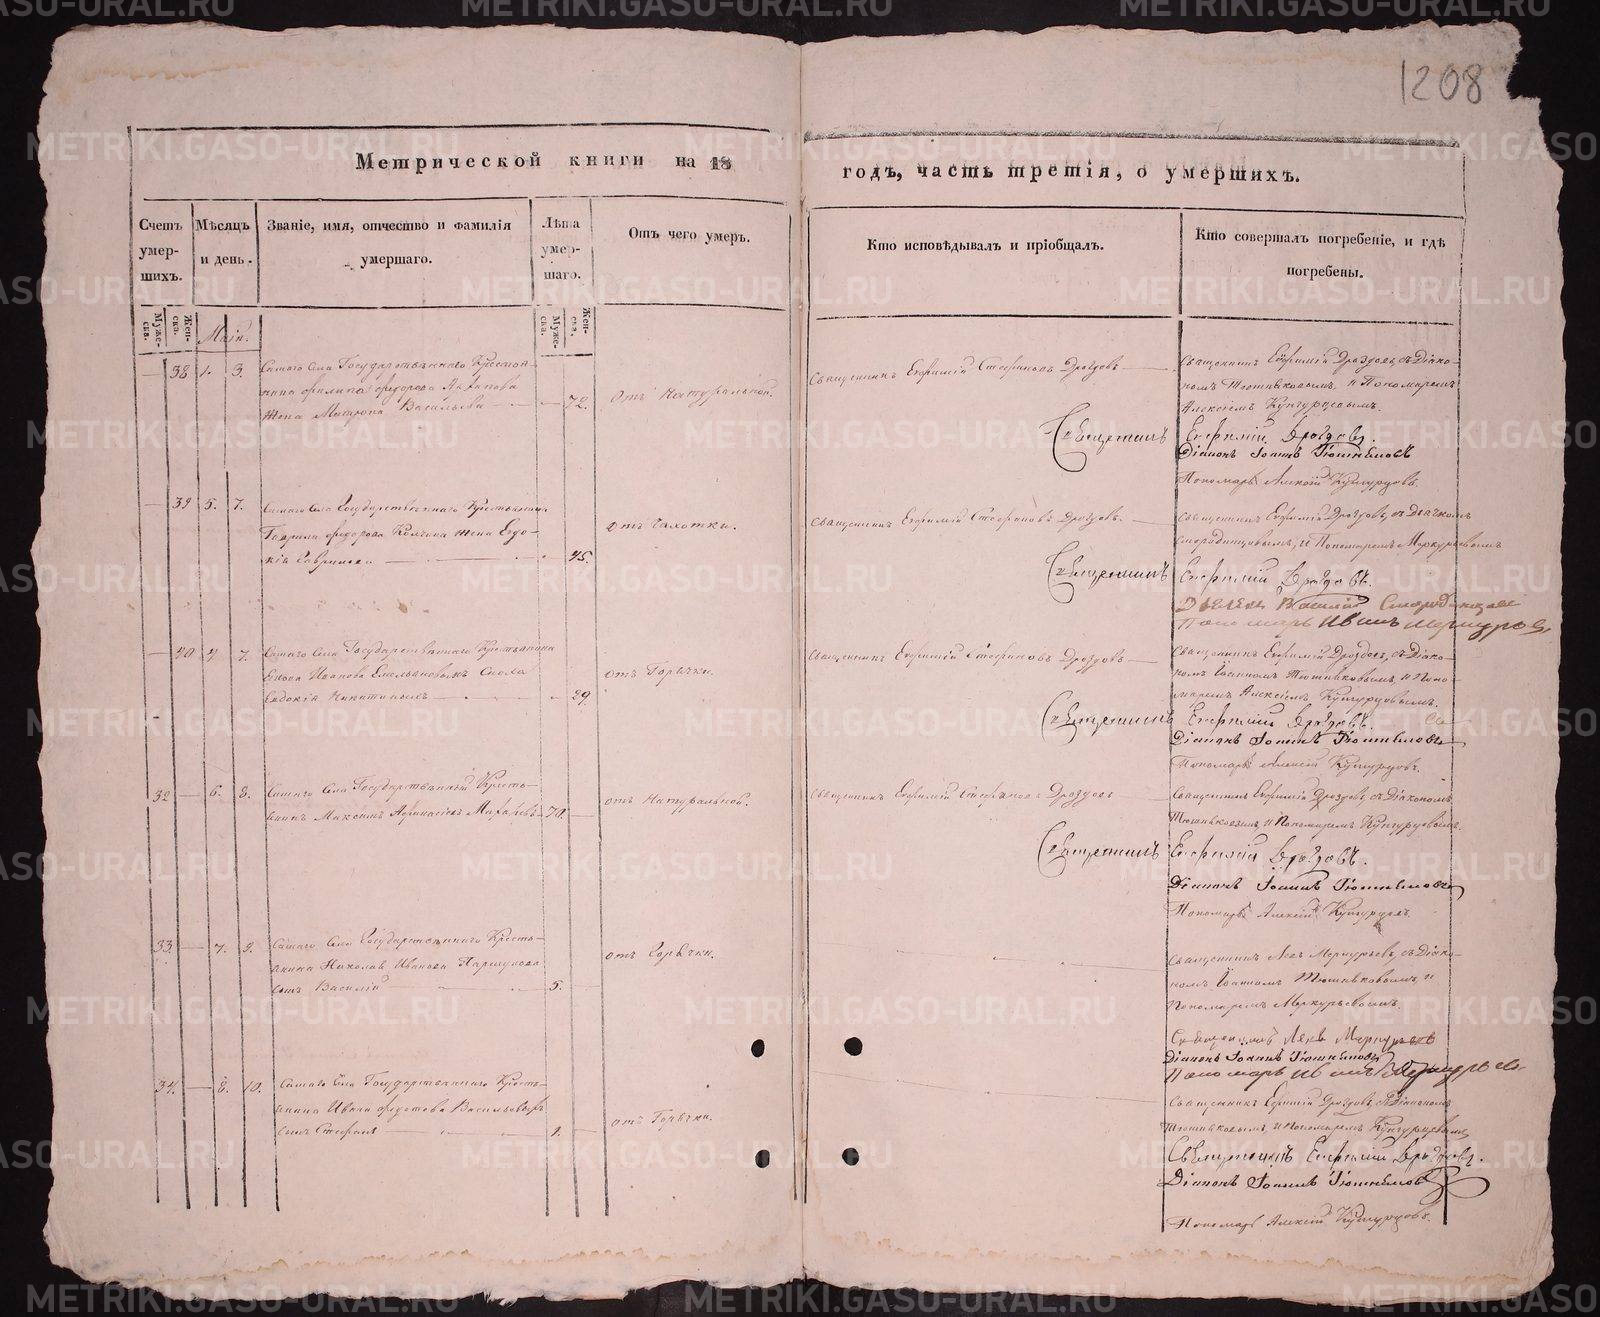 1208
Метрической книги на 18
годъ, часть третія, о умершихъ.
Счетъ умершихъ.
Мѣсяцъ и день.
Званіе, имя, отчество и фамилія умершаго.
Лѣта умершаго.
Отъ чего умеръ.
Кто исповѣдывалъ и пріобщалъ.
Кто совершалъ погребеніе, и гдѣ погребены.
Мужеска.
Женска.
Муже-ска.
Жен-ска.
Маій.
38 1. 3. Самаго Села Государственнаго Крестья-
нина Филипа Федорова
жена Матрона Васильева 72.
отъ Натуральной.
Священникъ Евфимій Стефановъ Дроздовъ
Священникъ Евфимій Дроздовъ, съ Діако-
номъ Тюшняковымъ и Пономаремъ
Алексіемъ Кунгурцовымъ.
Священникъ Евфимій Дроздовъ.
Діаконъ Іоаннъ Тюшняковъ
Пономарь Алексій Кунгурцовъ.
39 5. 7. Самаго Села Государственнаго Крестьянина
Гаврила Федорова жена Евдо-
кія Гаврилова 45.
отъ Чахотки.
Священникъ Евфимій Стефановъ Дроздовъ.
Священникъ Евфимій Дроздовъ, съ Дьячкомъ
Смородинцовымъ, и Пономаремъ Меркурьевымъ
Священникъ Евфимій Дроздовъ.
Василій Смородинцовъ
Пономарь Иванъ Меркурьевъ
40 4. 7. Самаго Села Государственнаго Крестьянина
Ивана
Евдокія 29.
отъ Горячки.
Священникъ Евфимій Стефановъ Дроздовъ
Священникъ Евфимій Дроздовъ, съ Діако-
номъ Іоанномъ Тюшняковымъ, и Поно-
маремъ Алексіемъ Кунгурцовымъ.
Священникъ Евфимій Дроздовъ.
Діаконъ Іоаннъ Тюшняковъ
Пономарь Алексій Кунгурцовъ.
32 6. 8. Самаго Села Государственный Кресть-
янинъ Максимъ Афанасіевъ Макаровъ 70.
отъ Натуральной.
Священникъ Евфимій Стефановъ Дроздовъ
Священникъ Евфимій Дроздовъ, съ Діакономъ
Тюшняковымъ, и Пономаремъ Кунгурцовымъ.
Священникъ Евфимій Дроздовъ.
Діаконъ Іоаннъ Тюшняковъ
Пономарь Алексій Кунгурцовъ.
33. 7. 9. Самаго Села Государственнаго Кресть-
янина Николая Иванова
сынъ Василій 5.
отъ Горячки.
Священникъ Левъ Меркурьевъ, съ Діако-
номъ Іоанномъ Тюшняковымъ, и
Пономаремъ Меркурьевымъ.
Священникъ Левъ Меркурьевъ
Діаконъ Іоаннъ Тюшняковъ
Пономарь Иванъ Меркурьевъ
34. 8. 10. Самаго Села Государственнаго Кресть-
янина Ивана Федотова
сынъ Стефанъ 1.
отъ Горячки.
Священникъ Евфимій Дроздовъ, съ Діакономъ
Тюшняковымъ, и Пономаремъ Кунгурцовымъ
Священникъ Евфимій Дроздовъ.
Діаконъ Іоаннъ Тюшняковъ
Пономарь Алексій Кунгурцовъ.
METRIKI.GASO-URAL.RU